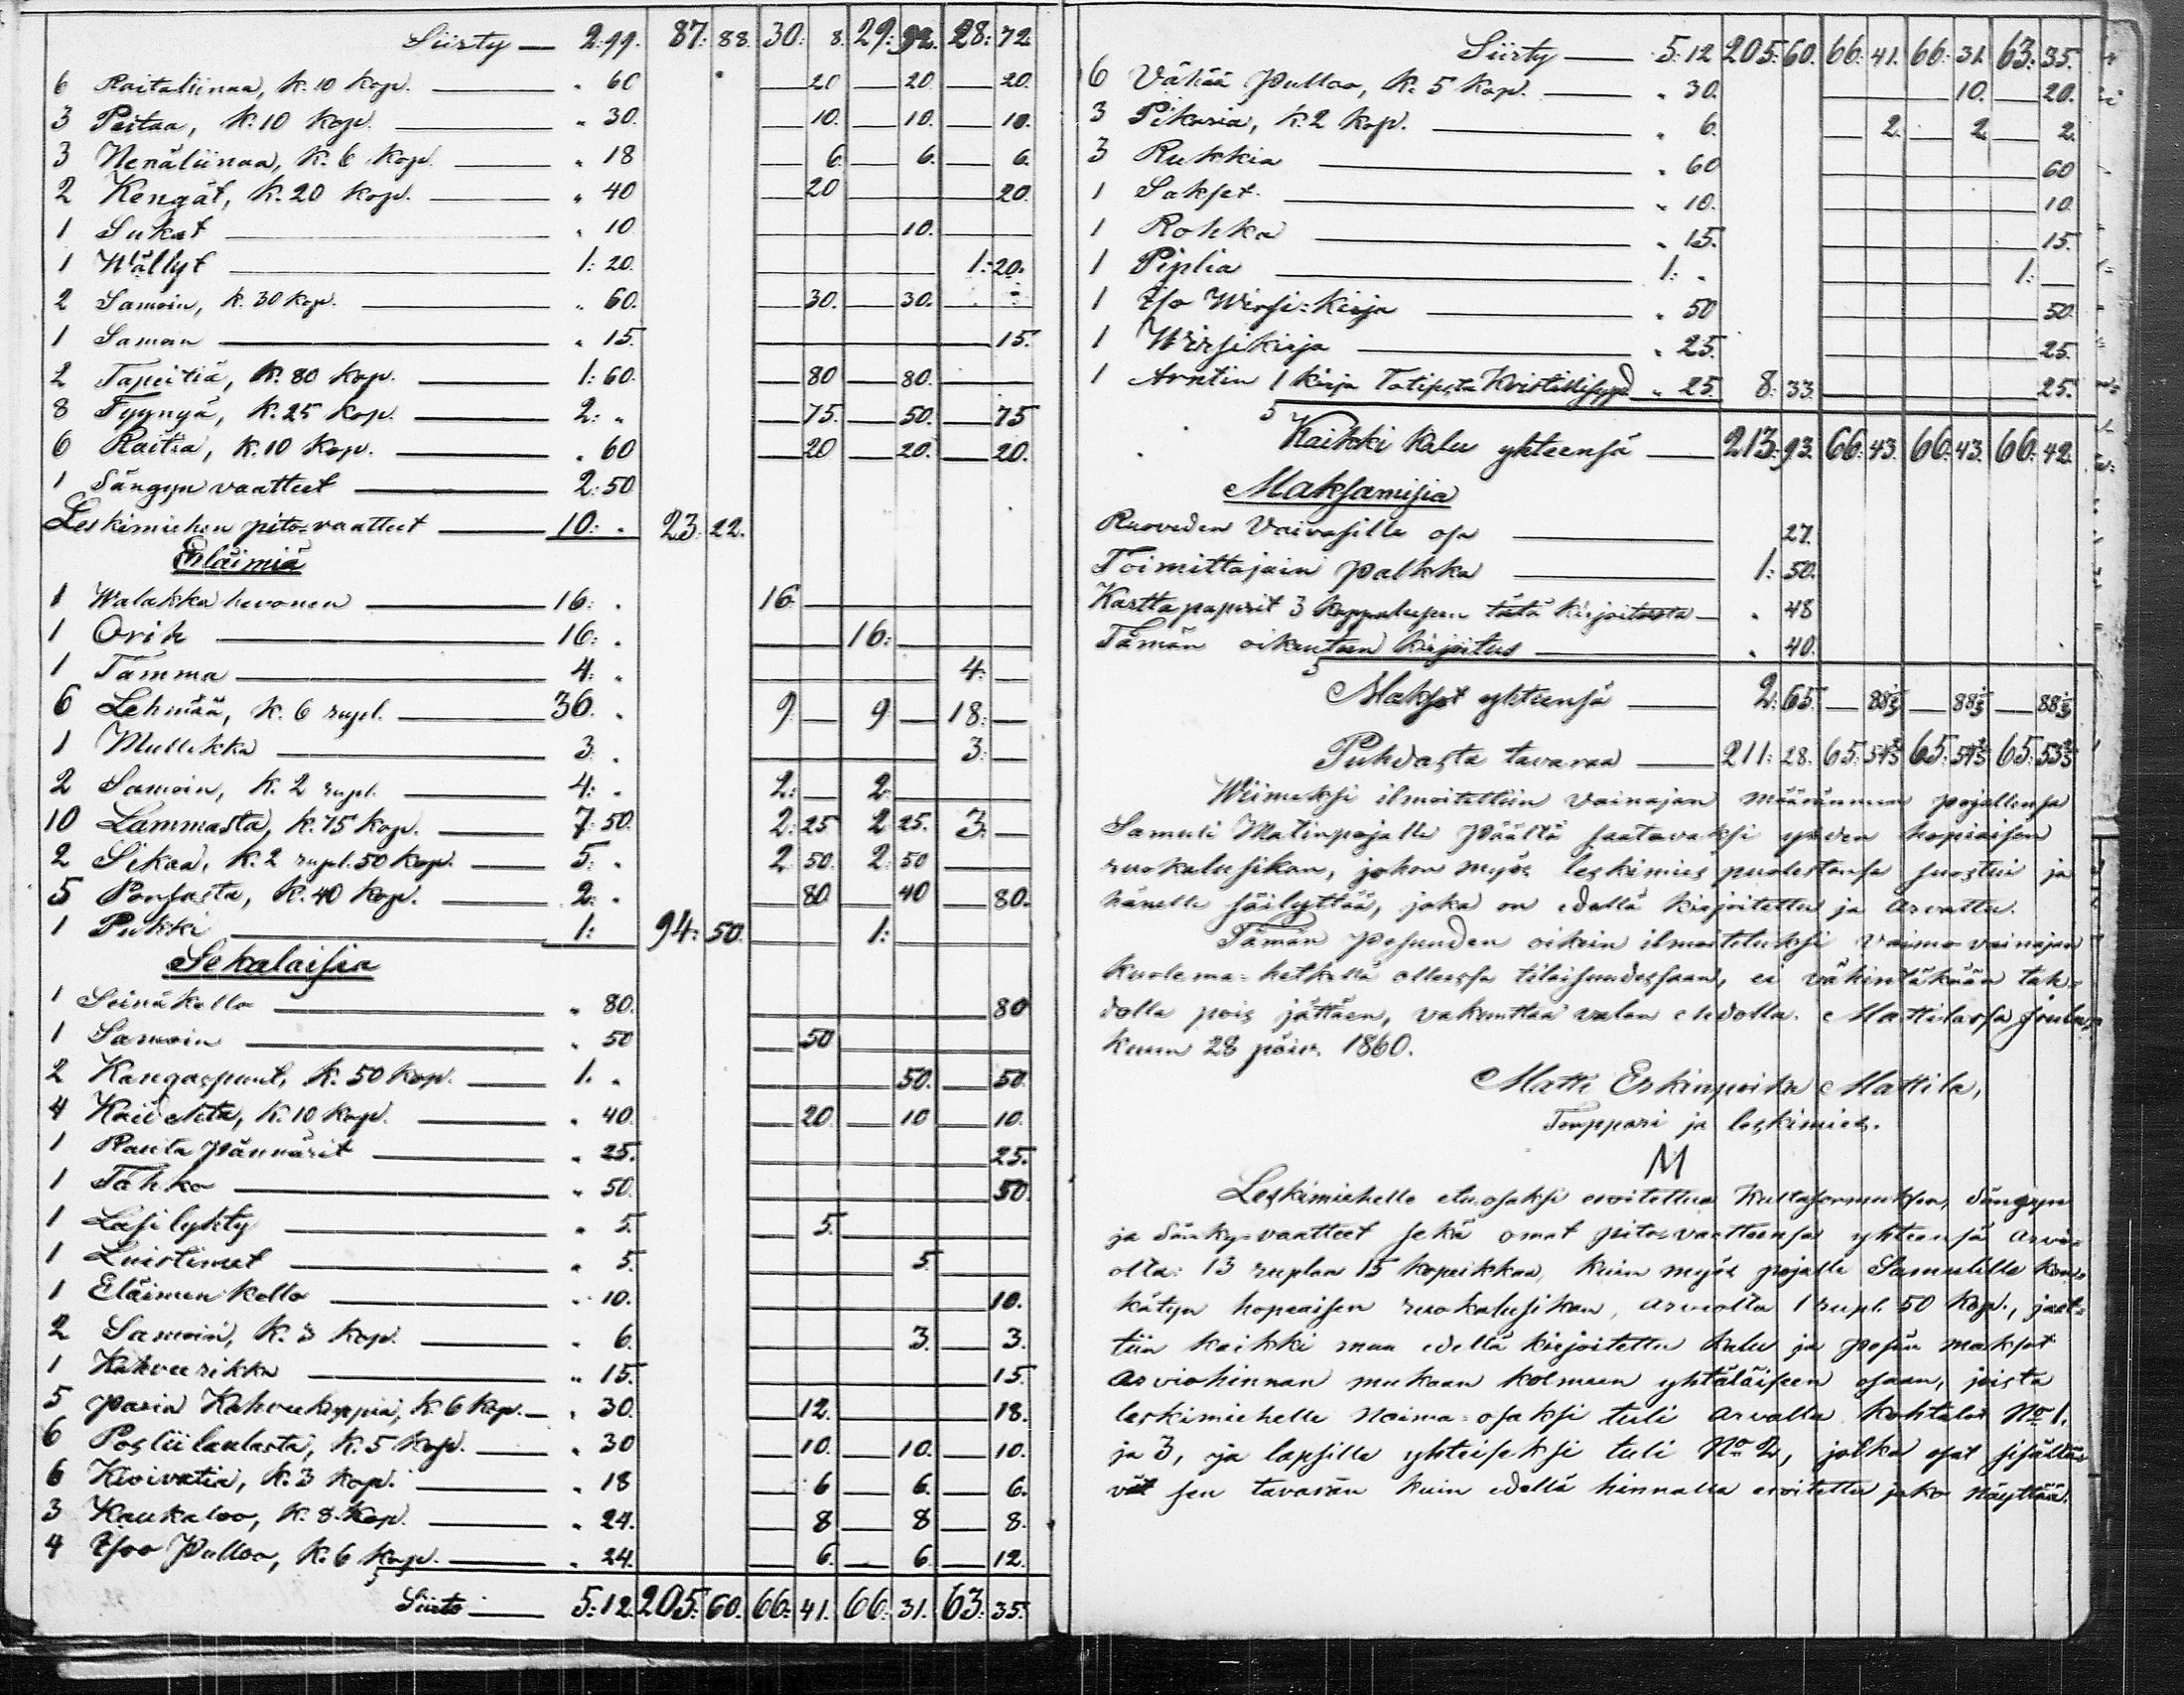 Siirty — 2:99. 87:88. 30: 8. 29:92. 28:72.
6 Raitaliinaa, k. 10 kop. — " 60 — 20 — 20 — 20.
3 Paitaa, k. 10 kop. — " 30. — 10. — 10. — 10.
3 Nenäliinaa, k. 6 kop. — " 18 — 6. — 6. — 6.
2 Kengät, k. 20 kop. — " 40 — 20 — 20.
1 Sukat — " 10 — 10. —
1 Wällyt — 1: 20. — 1:20.
2 Samoin, k. 30 kop. — " 60. — 30. — 30.
1 Samoin — " 15. — 15.
2 Tapeitiä, k. 80 kop. — 1: 60. — 80 — 80. —
8 Tyynyä, k. 25 kop. — 2: " — 75. — 50. — 75
6 Raitia, k. 10 kop. — " 60 — 20 — 20. — 20.
1 Sängyn vaatteet — 2:50
Leskimiehen pito=vaatteet — 10: " 23:22.
Eläimiä
1 Walakka hevonen — 16: " 16. —
1 Orih — 16: " — 16: —
1 Tamma — 4: " — 4: —
6 Lehmää, k. 6 rupl. — 36. " 9: — 9 — 18: —
1 Mullikka — 3: " — 3: —
2 Samoin, k. 2 rupl. — 4: " 2: — 2: —
10 Lammasta, k. 75 kop. — 7:50. 2:25 2:25. 3: —
2 Sikaa, k. 2 rupl. 50 kop. — 5: " 2:50. 2:50 —
5 Porsasta, k. 40 kop. — 2: " — 80 — 40 — 80.
1 Pukki — 1: 94:50. — 1: —
Sekalaisia
1 Seinäkello — " 80. — 80
1 Samoin — " 50 — 50 —
2 Kangaspuut, k. 50 kop. — 1. " — 50. — 50.
4 k. 10 kop. — " 40. — 20. — 10 — 10.
1 Rauta — " 25. — 25.
1 Tahko — " 50. — 50.
1 Lasilykty — " 5. — 5. —
1 Luistimet — " 5. — 5. —
1 Eläimen kello — " 10. — 10.
2 Samoin, k. 3 kop. — " 6. — 3. — 3.
1 — " 15. — 15.
5 paria Kahvee k. 6 kop. — " 30. — 12. — 18.
6 k. 5 kop. — " 30 — 10. — 10. — 10.
6 Kivivatia, k. 3 kop. — " 18 — 6 — 6. — 6.
3 Kaukaloo, k. 8 kop. — " 24. — 8 — 8 — 8.
4 Isoo Pulloo, k. 6 kop. — " 24. — 6. — 6. — 12.
Siirto — 5:12. 205:60. 66:41. 66:31. 63:35.
Siirty — 5:12 205:60. 66:41. 66:31. 63:35.
6 Vähää Pulloo, k. 5 kop. — " 30. — 10. — 20.
3 Pikaria, k. 2 kop. — " 6. — 2. — 2 — 2.
3 Rukkia — " 60 — 60
1 Sakset — " 10. — 10.
1 Rohka — " 15. — 15.
1 Piplia — 1: " — 1: —
1 Iso Wirsi=kirja — " 50 — 50.
1 Wirsikirja — " 25. — 25.
1 Arntin 1 kirja " 25 8:33. — 25.
Kaikki kalu yhteensä — 213:93. 66:43. 66:43. 66:42.
Maksamisia
Ruoveden Vaivasille osa — 27.
Toimittajain palkka — 1:50.
Karttapaperit 3 tätä kirjoitusta — " 48
Tämän oikeuteen kirjoitus — " 40.
Maksot yhteensä — 2:65. — 88⅓ — 88⅓ — 88⅓
Puhdasta tavaraa — 211:28. 65:54⅔ 65:54⅔ 65:53⅔
Wiimeksi ilmoitettiin vainajan määränneen pojallensa
Samuli Matinpojalle päältä saatavaksi yhden hopiaisen
ruokalusikan, johon myös leskimies puolestansa suostui ja
hänelle säilyttää, joka on edellä kirjoitettu ja arvattu.
Tämän pesuuden oikein ilmoitetuksi vaimo vainajan
kuolema=hetkellä ollessa tilaisuudessaan, ei vähintäkään tah=
dolla pois jättäen, vakuuttaa valan ehdolla. Mattilassa joulu=
kuun 28 päiv. 1860.
Matti Erkinpoika Mattila,
Torppari ja leskimies.
M
Leskimiehelle etu=osaksi eroitettua kultasormuksen, Sängyn
ja Sänky=vaatteet sekä omat pitovaatteensa yhteensä arvi=
olta: 13 ruplan 15 kopeikkaa, kuin myös pojalle Samulille
kätyn hopeaisen ruokalusikan, arviolta 1 rupl. 50 kop., jaet=
tiin kaikki muu edellä kirjoitettu kalu ja pesän maksot
arviohinnan mukaan kolmeen yhtäläiseen osaan, joista
leskimiehelle naima=osaksi tuli arvalla kohtalot No 1.
ja 3, ja lapsille yhteiseksi tuli No 2, jotka osat sisältä=
vät sen tavaran kuin edellä hinnalla eroitettu jako näyttää.